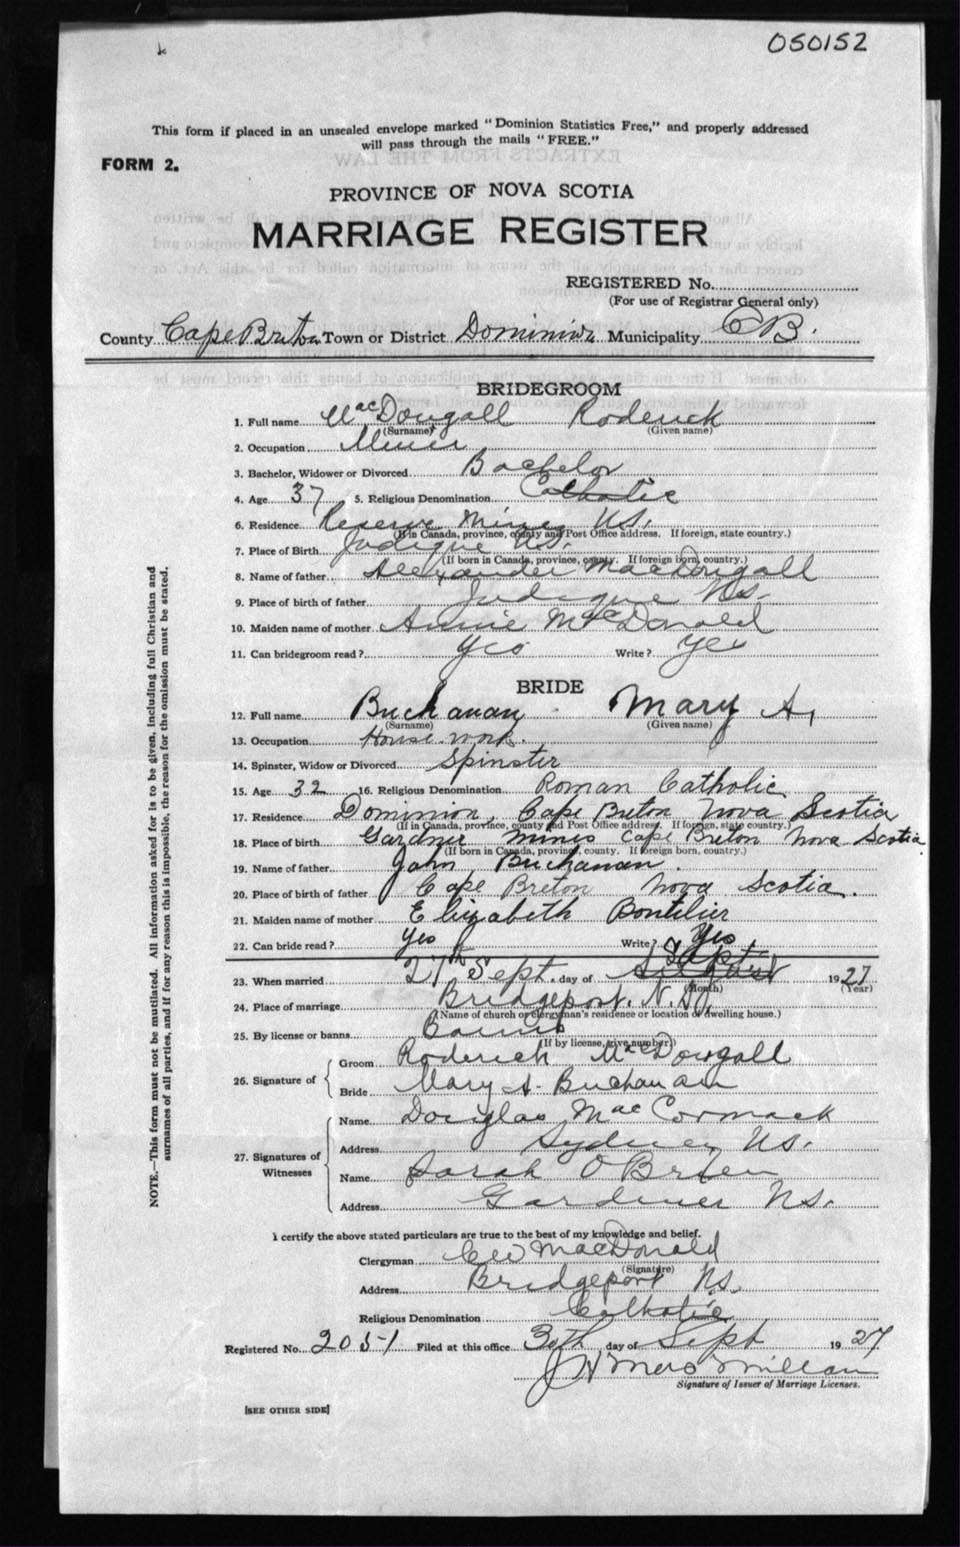 050152
This form if placed in an unsealed envelope marked "Dominion Statistics Free," and properly addressed
will pass through the mails "FREE."
FORM 2.
PROVINCE OF NOVA SCOTIA
MARRIAGE REGISTER
REGISTERED No.
(For use of Registrar General only)
County Cape Breton Town or District Dominion Municipality CB.
BRIDEGROOM
1. Full name MacDougall Roderick
(Surname) (Given name)
2. Occupation Miner
3. Bachelor, Widower or Divorced Bachelor
4. Age 37 5. Religious Denomination Catholic
6. Residence Reserve Mines NS.
(If in Canada, province, county and Post Office address. If foreign, state country.)
7. Place of Birth Judique NS.
(If born in Canada, province, county. If foreign born, country.)
8. Name of father Alexander MacDougall
9. Place of birth of father Judique NS.
10. Maiden name of mother Annie MacDonald
11. Can bridegroom read? Yes Write? Yes
BRIDE
12. Full name Buchanan Mary A.
(Surname) (Given name)
13. Occupation House work.
14. Spinster, Widow or Divorced Spinster
15. Age 32 16. Religious Denomination Roman Catholic
17. Residence Dominion, Cape Breton Nova Scotia
(If in Canada, province, county and Post Office address. If foreign, state country.)
18. Place of birth Gardner Mines Cape Breton Nova Scotia
(If born in Canada, province, county. If foreign born, country.)
19. Name of father John Buchanan.
20. Place of birth of father Cape Breton Nova Scotia.
21. Maiden name of mother Elizabeth Bontilier
22. Can bride read? Yes Write? Yes
Sept
23. When married 27th Sept. day of August 1927
(Month) (Year)
24. Place of marriage Bridgeport. N.S.
(Name of church or clergyman's residence or location of dwelling house.)
25. By license or banns Banns
(If by license, give number.)
26. Signature of Groom Roderick MacDougall
Bride Mary A. Buchanan
27. Signatures of Witnesses Name Douglas MacCormack
Address Sydney NS.
Name Sarah O'Brien
Address Gardiner NS.
I certify the above stated particulars are true to the best of my knowledge and belief.
Clergyman MacDonald
(Signature)
Address Bridgeport NS.
Religious Denomination Catholic
Registered No. 2051 Filed at this office 30th day of Sept 1927
Signature of Issuer of Marriage Licenses.
[SEE OTHER SIDE]
NOTE.—This form must not be mutilated. All information asked for is to be given, including full Christian and
surnames of all parties, and if for any reason this is impossible, the reason for the omission must be stated.